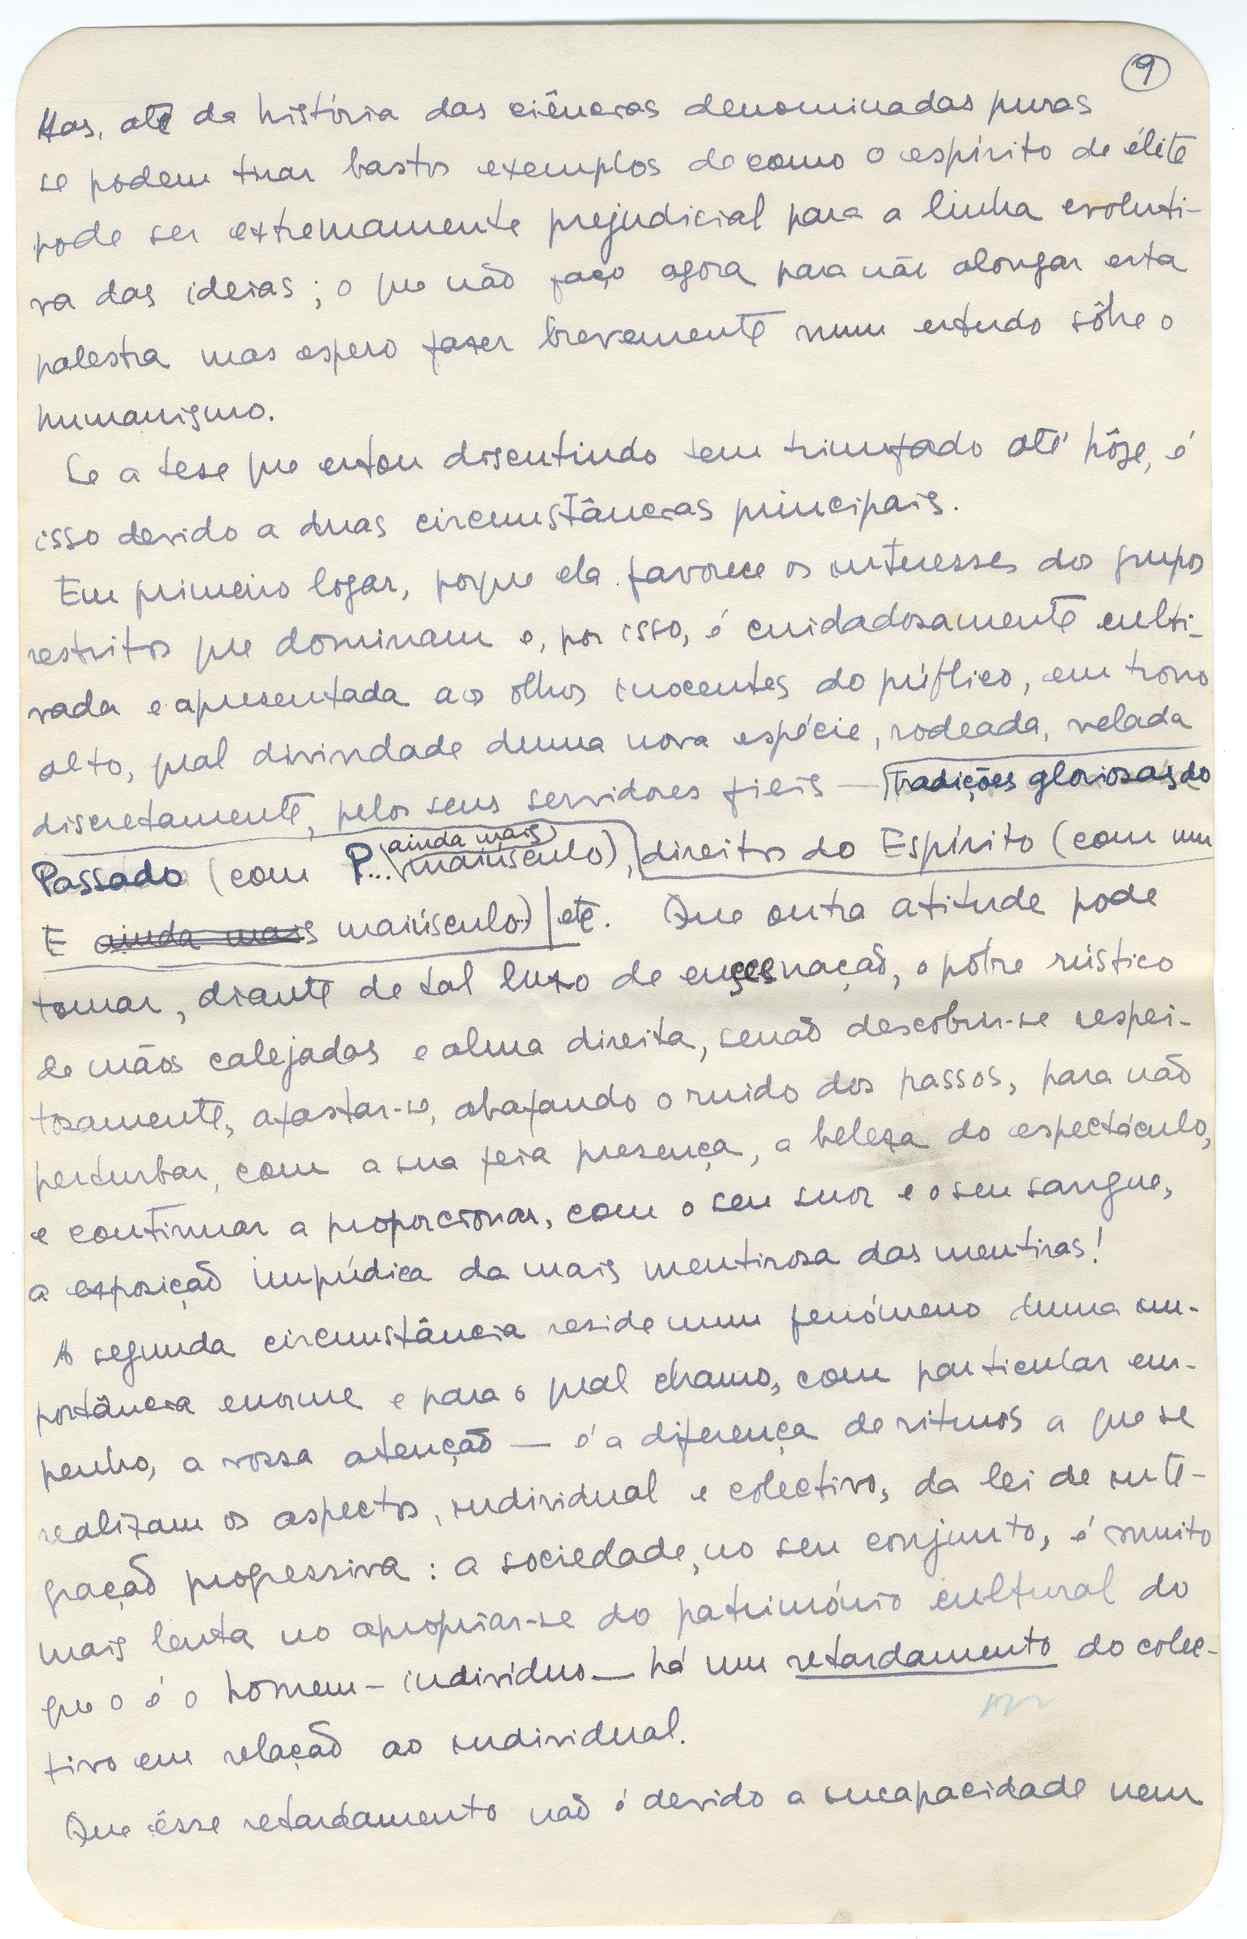 9
Mas, até da história das ciências denominadas puras
se podem tirar bastos exemplos de como o espírito de élite
pode ser extremamente prejudicial para a linha evoluti-
va das ideias; o que não faço agora para não alongar esta
palestra mas espero fazer brevemente num estudo sôbre o
humanismo.
Se a tese que estou discutindo tem triunfado até hôje, é
isso devido a duas circunstâncias principais.
Em primeiro logar, porque ela favorece os interesses dos grupos
restritos que dominam e, por isso, é cuidadosamente culti-
vada e apresentada aos olhos inocentes do público, em trono
alto, qual divindade duma nova espécie, rodeada, velada
discretamente, pelos seus servidores fieis — Tradições gloriosas do
Passado (com P... ainda mais maiúsculo), direitos do Espírito (com um
E ainda mais maiúsculo) etc. Que outra atitude pode
tomar, diante de tal luxo de encenação, o pobre rústico
de mãos calejadas e alma direita, senão descobrir-se respei-
tosamente, afastar-se, abafando o ruido dos passos, para não
perturbar, com a sua feia presença, a beleza do espectáculo,
e continuar a proporcionar, com o seu suor e o seu sangue,
a exposição impúdica da mais mentirosa das mentiras!
A segunda circunstância reside num fenómeno duma im-
portância enorme e para o qual chamo, com particular em-
penho, a vossa atenção — é a diferença de ritmos a que se
realizam os aspectos, individual e colectivo, da lei de inte-
gração progressiva: a sociedade, no seu conjunto, é muito
mais lenta no apropriar-se do património cultural do
que o é o homem-indivíduo — há um retardamento do colec-
tivo em relação ao individual.
Que êsse retardamento não é devido a incapacidade nem